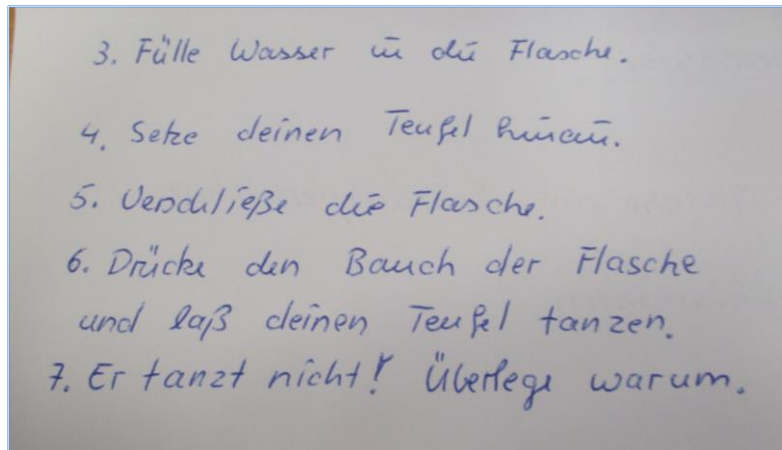 3. Fülle Wasser in die Flasche.
4. Setze deinen Teufel hinein.
5. Verschließe die Flasche.
6. Drücke den Bauch der Flasche
und laß deinen Teufel tanzen.
7. Er tanzt nicht! Überlege warum.